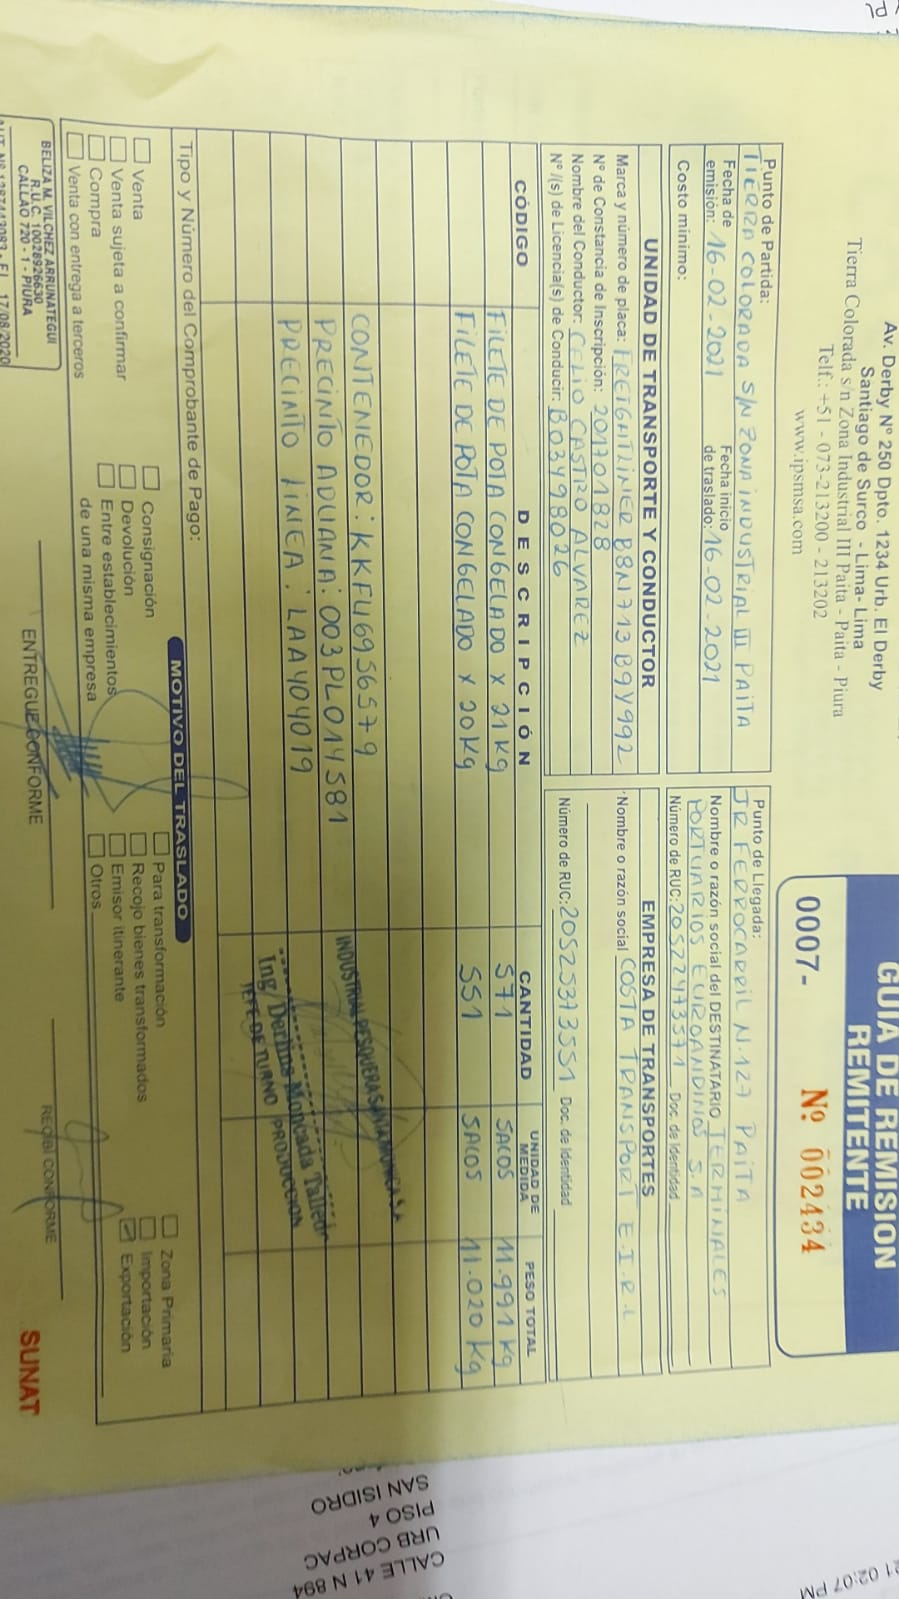 Av. Derby Nº 250 Dpto. 1234 Urb. El Derby
Santiago de Surco - Lima- Lima
Tierra Colorada s/n Zona Industrial III Paita - Paita - Piura
Telf.: +51 - 073-213200 - 213202
www.ipsmsa.com
GUIA DE REMISION
REMITENTE
0007- Nº 002434
Punto de Partida:
TIERRA COLORADA S/N ZONA INDUSTRIAL III PAITA
Fecha de emisión: 16-02-2021 Fecha inicio de traslado: 16-02-2021
Costo minimo:
Punto de Llegada:
JR FERROCARRIL N.127 PAITA
Nombre o razón social del DESTINATARIO TERMINALES
PORTUARIOS EUROANDINOS S.A
Número de RUC: 20522473571 Doc. de Identidad
UNIDAD DE TRANSPORTE Y CONDUCTOR
Marca y número de placa: FREIGHTLINER B8N713 B9Y992
Nº de Constancia de Inscripción: 201701828
Nombre del Conductor: CELIO CASTRO ALVAREZ
Nº /(s) de Licencia(s) de Conducir: B03498026
EMPRESA DE TRANSPORTES
Nombre o razón social COSTA TRANSPORT E.I.R.L
Número de RUC: 20525373551 Doc. de Identidad
CÓDIGO DESCRIPCIÓN CANTIDAD UNIDAD DE MEDIDA PESO TOTAL
FILETE DE POTA CONGELADO x 21 Kg 571 SACOS 11.991 Kg
FILETE DE POTA CONGELADO x 20 Kg 551 SACOS 11.020 Kg
CONTENEDOR: KKFU6956579
PRECINTO ADUANA: 003PL014581
PRECINTO LINEA: LAA404019
INDUSTRIAL PESQUERA SANTA MONICA S.A
Ing. Derlins Moncada Talledo
JEFE DE TURNO PRODUCCION
Tipo y Número del Comprobante de Pago:
MOTIVO DEL TRASLADO
Venta
Venta sujeta a confirmar
Compra
Venta con entrega a terceros
Consignación
Devolución
Entre establecimientos
de una misma empresa
Para transformación
Recojo bienes transformados
Emisor itinerante
Otros
Zona Primaria
Importación
Exportación
BELIZA M. VILCHEZ ARRUNATEGUI
R.U.C. 10028926630
CALLAO 720 - 1 - PIURA
17/08/2020
ENTREGUE CONFORME
RECIBI CONFORME
SUNAT
SAN ISIDRO
PISO 4
URB CORPAC
CALLE 41 N 894
21 02:07 PM